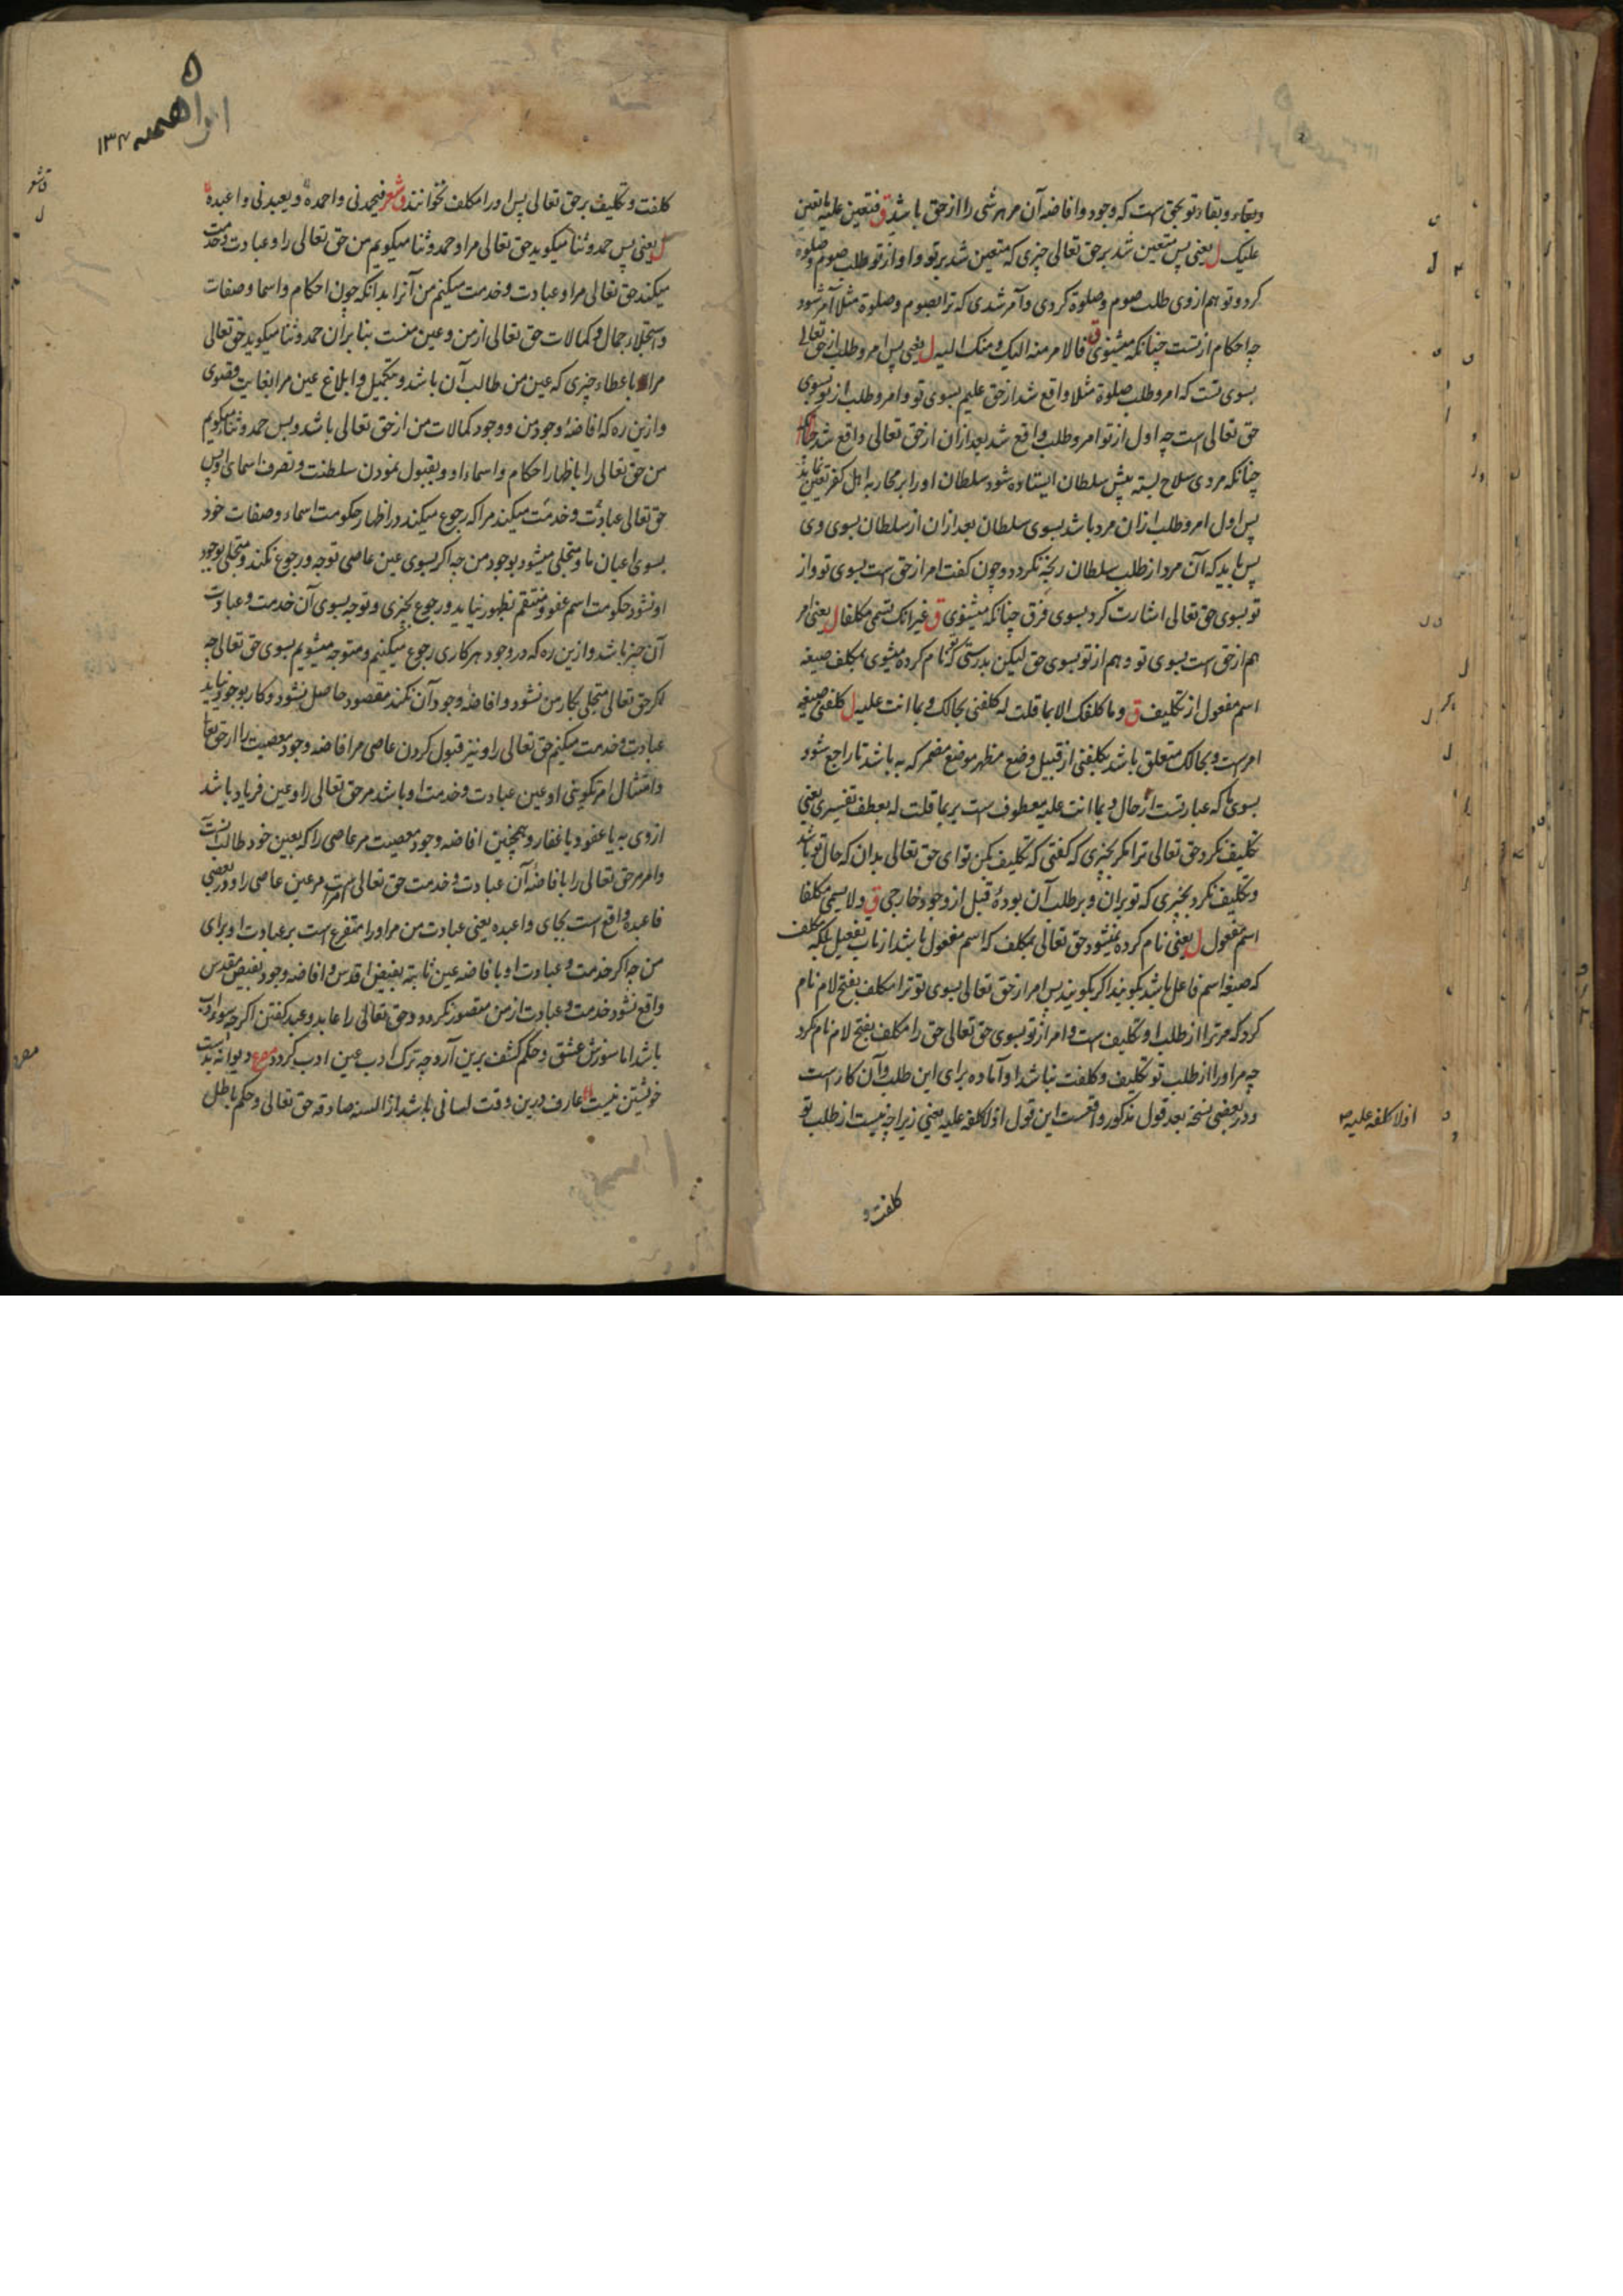 وبقاء وبقاء تو بحق است که وجود وافاضه آن مر هر شی را از حق باشد ق فتعین علیه ما تعین
علیک ل یعنی پس متعین شد بر حق تعالی چیزی که متعین شد بر تو واو از تو طلب صوم وصلوة
کرد وتو هم از وی طلب صوم وصلوة کردی وآمر شدی که ترا بصوم وصلوة مثلا آمر شود
چه احکام از تست چنانکه میشنوی ق فالامر منه الیک ومنک الیه ل یعنی پس امر وطلب از حق تعالی
بسوی تست که امر وطلب صلوة مثلا واقع شد از حق علیم بسوی تو وامر وطلب از تو بسوی
حق تعالی است چه اول از تو امر وطلب واقع شد بعد ازان از حق تعالی واقع شد
چنانکه مردی سلاح بسته پیش سلطان ایستاده شود سلطان اورا بر محاربه اهل کفر تعین نماید
پس اول امر وطلب ازان مرد باشد بسوی سلطان بعد ازان از سلطان بسوی وی
پس باید که آن مرد از طلب سلطان رنجه نگردد وچون گفت امر از حق است بسوی تو واز
تو بسوی حق تعالی اشارت کرد بسوی فرق چنانکه میشنوی ق غیر انک تسمی مکلفا ل یعنی امر
هم از حق است بسوی تو وهم از تو بسوی حق لیکن بدرستی که تو نام کرده میشوی بمکلف صیغه
اسم مفعول از تکلیف ق وما کلفک الا بما قلت له کلفنی بحالک وبما انت علیه ل کلفنی صیغه
امر است وبحالک متعلق باشد بکلفنی از قبیل وضع مظهر موضع مضمر که به باشد تا راجع شود
بسوی ما که عبارتست از حال وبما انت علیه معطوف است بر بما قلت له بعطف تفسیری یعنی
تکلیف نکرد حق تعالی ترا مگر بچیزی که گفتی که تکلیف بکن تو ای حق تعالی بدان که حال تو باشد
وتکلیف نکرد بچیزی که تو بران وبر طلب آن بودهٔ قبل از وجود خارجی ق ولا یسمی مکلفا
اسم مفعول ل یعنی نام کرده نمیشود حق تعالی بمکلف که اسم مفعول باشد از باب تفعیل بلکه مکلف
که صیغه اسم فاعل باشد بگویند اگر بگویند پس امر از حق تعالی بسوی تو ترا مکلف بفتح لام نام
کرد که مر ترا از طلب او تکلیف است وامر از تو بسوی حق تعالی حق را مکلف بفتح لام نام نکرد
چه مر اورا از طلب تو تکلیف وکلفت نباشد او آماده برای این طلب وآن کار است
ودر بعضی نسخه بعد قول مذکور واقعست این قول اذ لا کلفه علیه یعنی زیرا چه نیست از طلب تو
اذ لا کلفه علیه
کلفت و
۱۳۴
کلفت وتکلیف بر حق تعالی پس اورا مکلف نخوانند وشعر فیحمدنی واحمده ویعبدنی واعبده
ل یعنی پس حمد وثنا میگوید حق تعالی مرا وحمد وثنا میگویم من حق تعالی را وعبادت وخدمت
میکند حق تعالی مرا وعبادت وخدمت میکنم من آنرا بدانکه چون احکام واسما وصفات
واستجلاء جمال وکمالات حق تعالی از من وعین منست بنا بران حمد وثنا میگوید حق تعالی
مرا باعطاء چیزی که عین من طالب آن باشد وبتکمیل وابلاغ عین مرا بغایت قصوی
وازین ره که افاضهٔ وجود من ووجود کمالات من از حق تعالی باشد وبس حمد وثنا میگویم
من حق تعالی را باظهار احکام واسماء او وبقبول نمودن سلطنت وتصرف اسمای او پس
حق تعالی عبادت وخدمت میکند مرا که رجوع میکند در اظهار حکومت اسماء وصفات خود
بسوی اعیان ما ومتجلی میشود بوجود من چه اگر بسوی عین عاصی توجه ورجوع نکند ومتجلی بوجود
او نشود حکومت اسم عفو ومنتقم بظهور نیاید ورجوع بچیزی وتوجه بسوی آن خدمت وعبادت
آن چیز باشد وازین ره که در وجود هر کاری رجوع میکنیم ومتوجه میشویم بسوی حق تعالی چه
اگر حق تعالی متجلی بکار من نشود وافاضهٔ وجود آن نکند مقصود حاصل نشود وکار بوجود نیاید
عبادت وخدمت میکنیم حق تعالی را ونیز قبول کردن عاصی مر افاضه وجود معصیت را از حق تعالی
وامتثال امر تکوینی او عین عبادت وخدمت او باشد مر حق تعالی را وعین فریاد باشد
از وی به یا عفو ویا غفار وهمچنین افاضه وجود معصیت مر عاصی را که بعین خود طالب آنست
وامر مر حق تعالی را بافاضهٔ آن عبادت وخدمت حق تعالی است مر عین عاصی را ودر بعضی
فاعبده واقع است بجای واعبده یعنی عبادت من مر اورا متفرع است بر عبادت او برای
من چه اگر خدمت وعبادت او بافاضه عین ثابته بفیض اقدس وافاضه وجود بفیض مقدس
واقع نشود خدمت وعبادت از من متصور نگردد وحق تعالی را عابد وعبد گفتن اگر چه سوء ادب
باشد اما سوزش عشق وحکم کشف برین آرد چه ترک ادب عین ادب گردد مصرع دیوانه بدست
خویشتن نیست عارف درین وقت لسانی باشد از السنه صادقه حق تعالی وحکم باطل